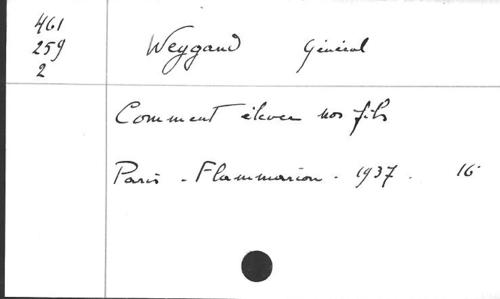 461
259
2
Weygand Général
Comment élever nos fils
Paris - Flammarion - 1937 - 16